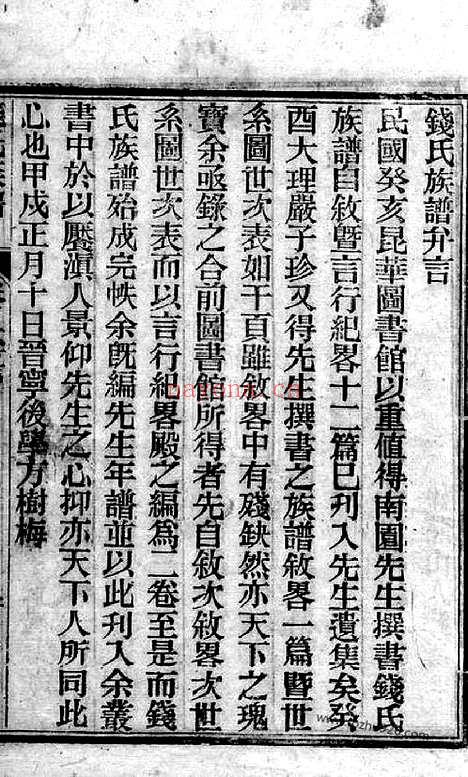 錢氏族譜弁言
民國癸亥昆華圖書館以重值得南園先生撰書錢氏
族譜自敘暨言行紀畧十二篇已刋入先生遺集矣癸
酉大理嚴子珍又得先生撰書之族譜敘畧一篇暨世
系圖世次表如干頁雖敘畧中有殘缺然亦天下之瑰
寶余亟錄之合前圖書館所得者先自敘次敘畧次世
系圖世次表而以言行紀畧殿之編為二卷至是而錢
氏族譜始成完帙余既編先生年譜並以此刋入余叢
書中於以饜滇人景仰先生之心抑亦天下人所同此
心也甲戌正月十日晉寧後學方樹梅